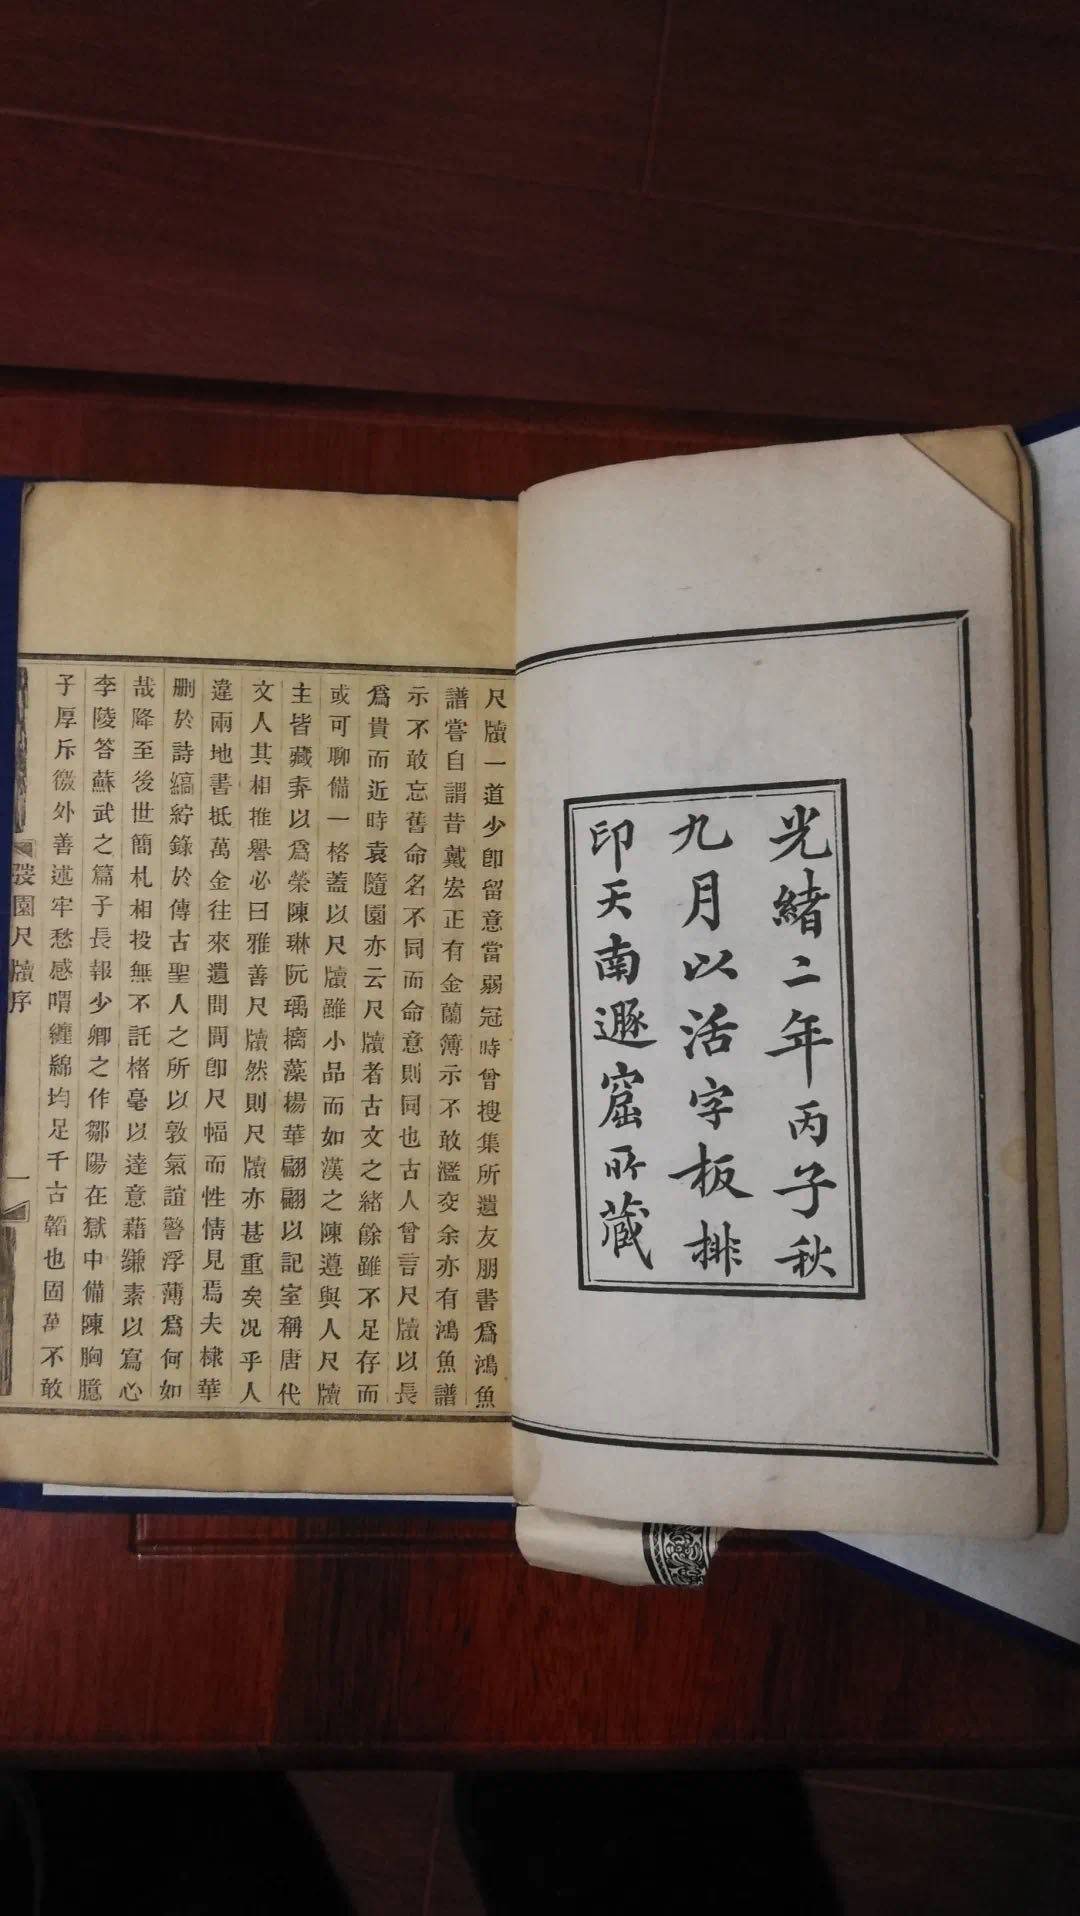 光緒二年丙子秋
九月以活字板排
印天南遯窟所藏
尺牘一道少卽留意當弱冠時曾搜集所遺友朋書爲鴻魚
譜嘗自謂昔戴宏正有金蘭簿示不敢濫交余亦有鴻魚譜
示不敢忘舊命名不同而命意則同也古人曾言尺牘以長
爲貴而近時袁隨園亦云尺牘者古文之緒餘雖不足存而
或可聊備一格蓋以尺牘雖小品而如漢之陳遵與人尺牘
主皆藏弆以爲榮陳琳阮瑀摛藻楊華翩翩以記室稱唐代
文人其相推譽必曰雅善尺牘然則尺牘亦甚重矣况乎人
違兩地書抵萬金往來遺問間卽尺幅而性情見焉夫棣華
删於詩縞紵錄於傳古聖人之所以敦氣誼警浮薄爲何如
哉降至後世簡札相投無不託楮毫以達意藉縑素以寫心
李陵答蘇武之篇子長報少卿之作鄒陽在獄中備陳胸臆
子厚斥徼外善述牢愁感喟纏綿均足千古韜也固萬不敢
弢園尺牘序
一